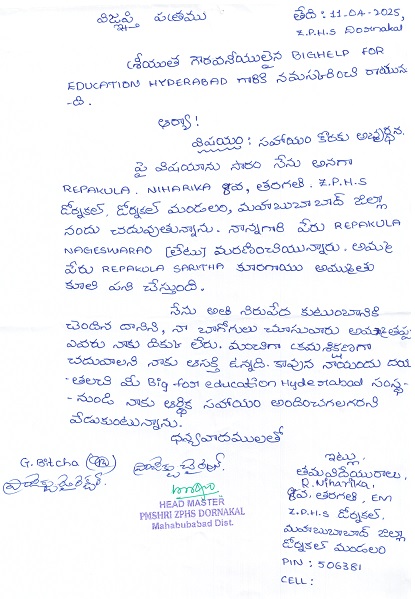 విజ్ఞప్తి పత్రము
తేది : 11-04-2025,
Z.P.H.S Dornakal
శ్రీయుత గౌరవనీయులైన BIGHELP FOR
EDUCATION HYDERABAD గారికి నమస్కరించి రాయున
-ది.
ఆర్యా!
విషయం : సహాయం కొరకు అభ్యర్థన.
పై విషయాను సారం నేను అనగా
REPAKULA. NIHARIKA 8వ, తరగతి. Z.P.H.S
డోర్నకల్, డోర్నకల్ మండలం, మహబుబాబాద్ జిల్లా
నందు చదువుతున్నాను. నాన్నగారి పేరు REPAKULA
NAGESWARAO [లేటు] మరణించియున్నారు. అమ్మ
పేరు REPAKULA SARITHA కూరగాయు అమ్ముతు
కూలి పని చేస్తుంది.
నేను అతి నిరుపేద కుటుంబానికి
చెందిన దానిని, నా బాగోగులు చూసువారు అమ్మతప్ప
ఎవరు నాకు దిక్కు లేరు. మంచిగా క్రమశిక్షణగా
చదువాలని నాకు ఆసక్తి ఉన్నది. కావున నాయందు దయ
-తలచి మీ Big-for education Hyderabad సంస్థ-
-నుండి నాకు ఆర్థిక సహాయం అందించగలగరని
వేడుకుంటున్నాను.
ధన్యవాదములతో
G. Bitcha
ప్రాజెక్టు డైరెక్టర్.
HEAD MASTER
PMSHRI ZPHS DORNAKAL
Mahabubabad Dist.
ఇట్లు
తమవిదేయురాలు,
R. Niharika,
8వ. తరగతి, EM
Z.P.H.S డోర్నకల్.
మహబుబాబాద్ జిల్లా
డోర్నకల్ మండలం
PIN : 506381
CELL :